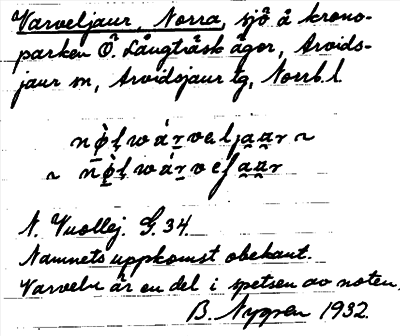 Varveljaur, Norra, sjö å krono-
parken Ö. Långträsk ägor, Arvids-
jaur sn, Arvidsjaur tg, Norrb. l.
wárveljaar ~
~ wárve
N. Vuollej. G. 34.
Namnets uppkomst obekant.
Varvelve är en del i spetsen av noten.
B. Nygren 1932.